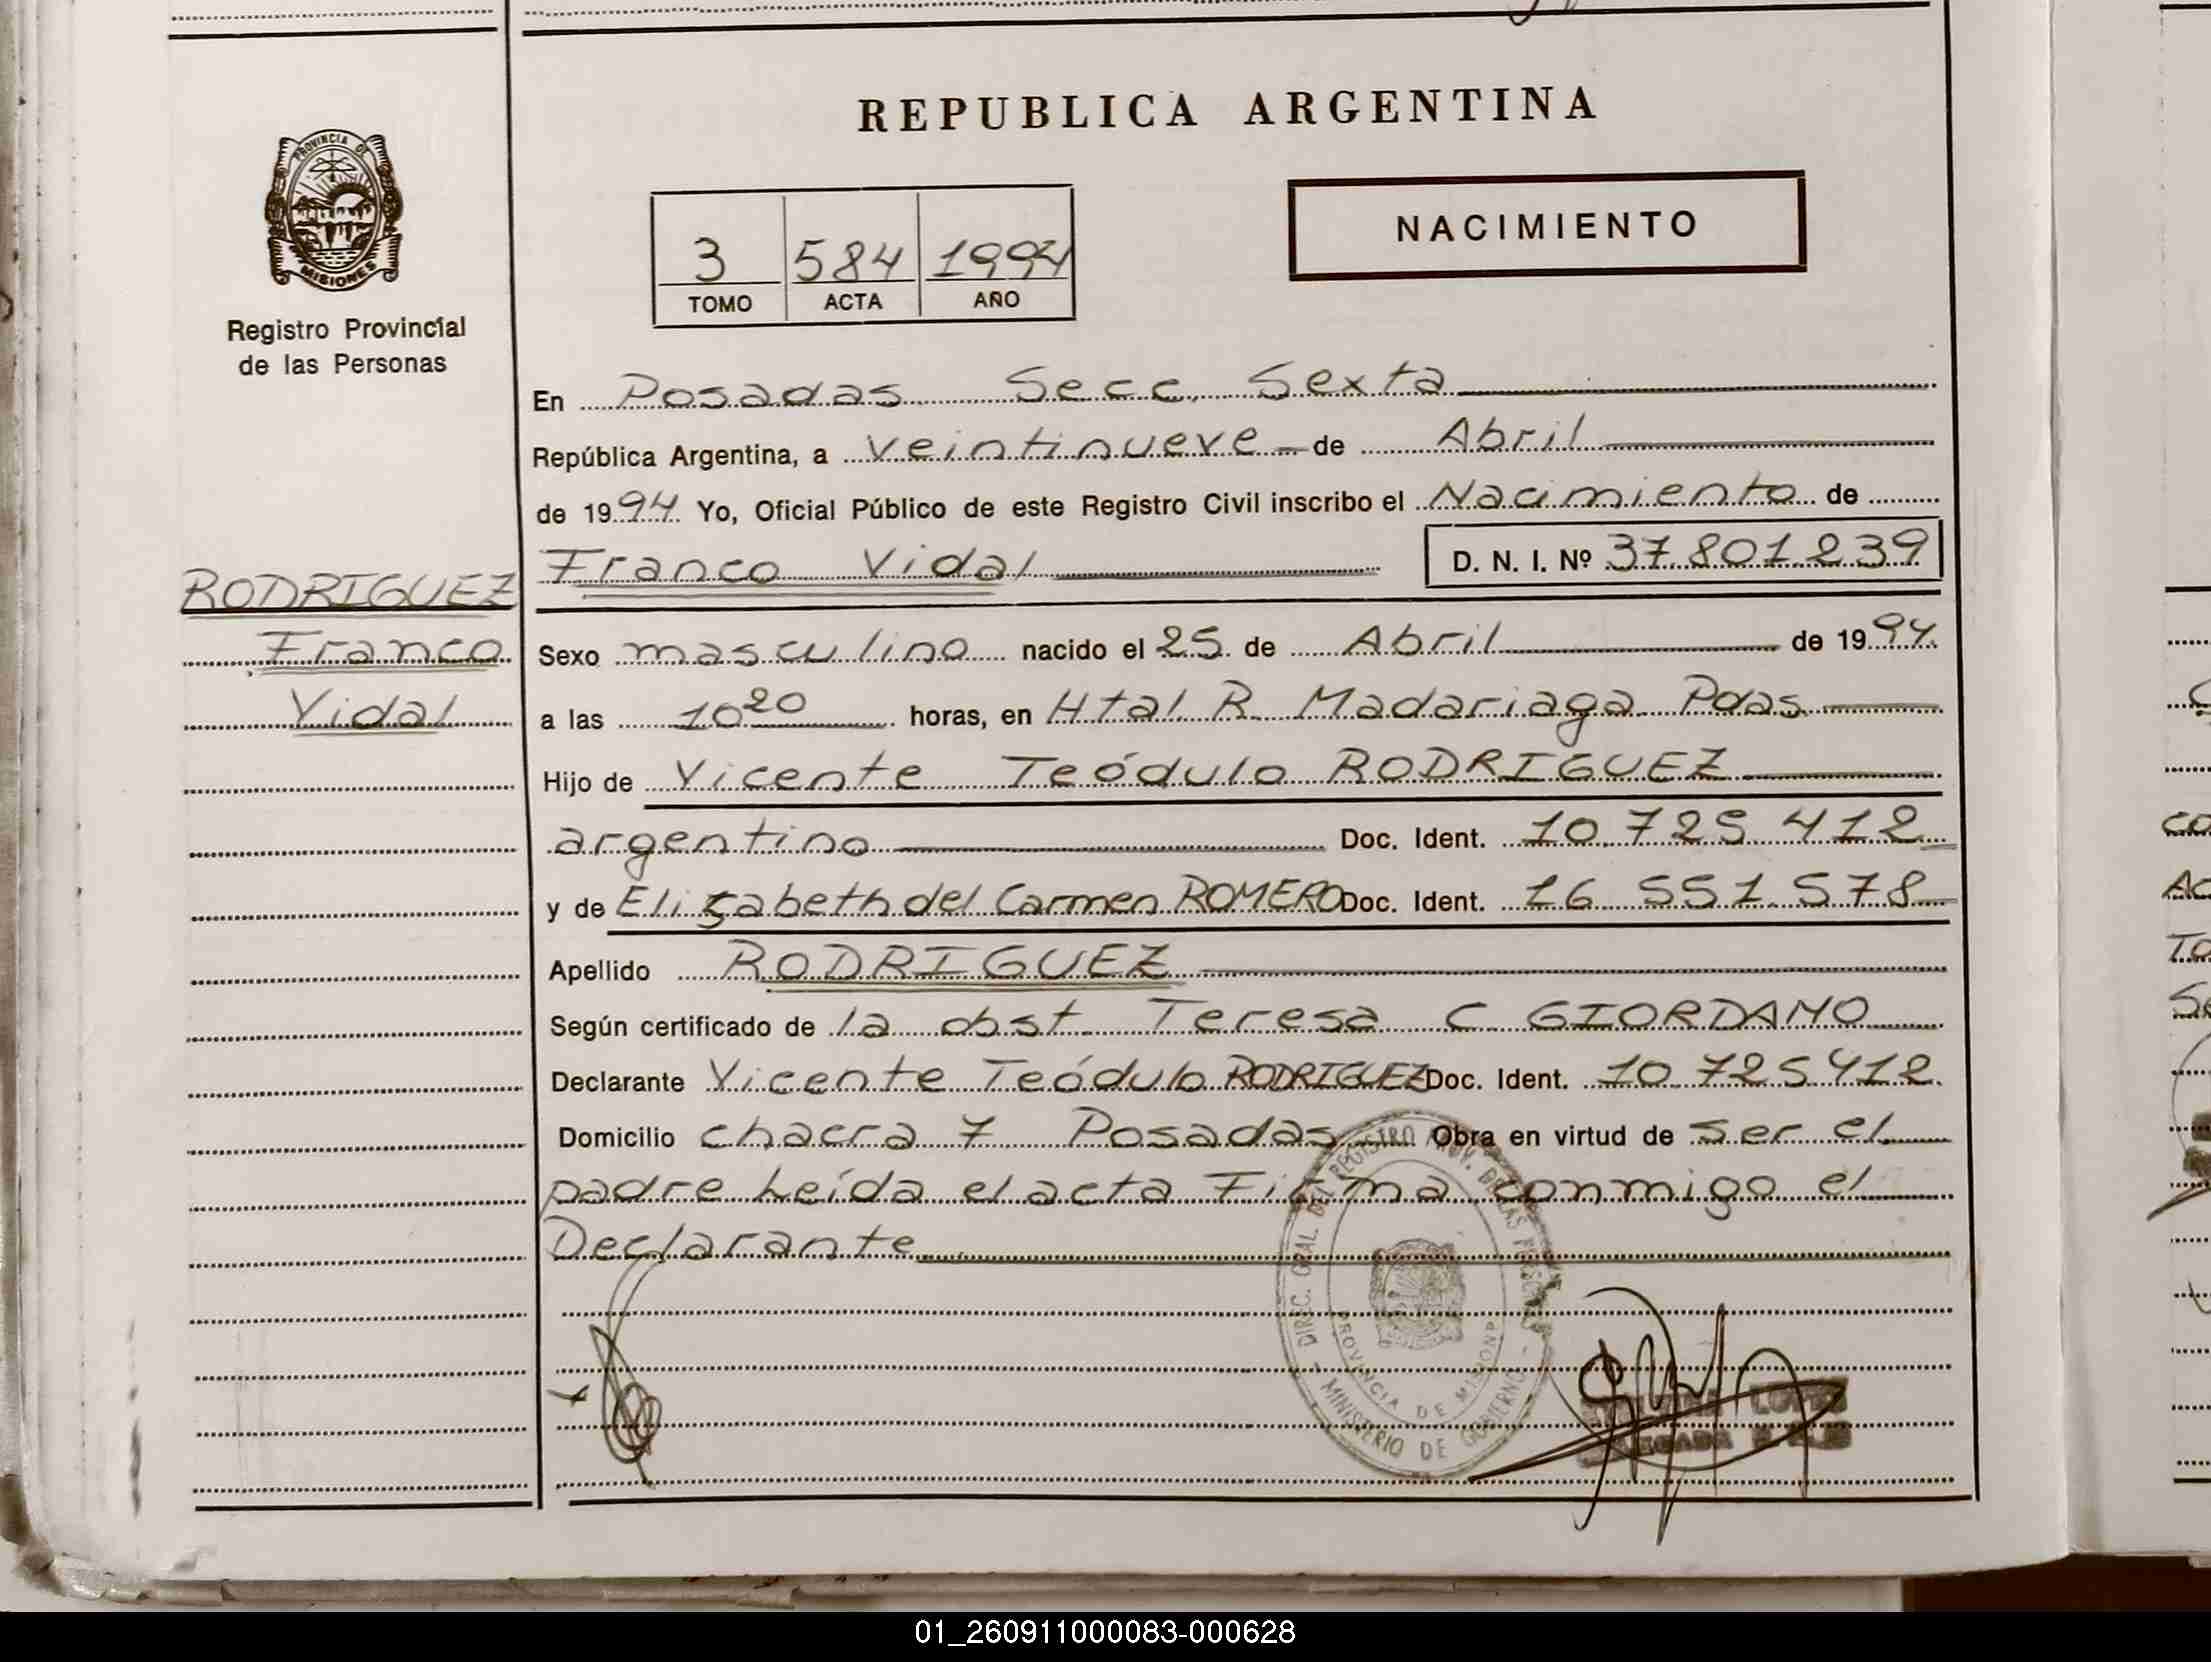 REPUBLICA ARGENTINA
PROVINCIA DE
MISIONES
Registro Provincial
de las Personas
NACIMIENTO
3 584 1994
TOMO ACTA AÑO
En Posadas Secc. Sexta
República Argentina, a veintinueve de Abril
de 1994 Yo, Oficial Público de este Registro Civil inscribo el Nacimiento de
Franco Vidal D. N. I. Nº 37.801.239
RODRIGUEZ
Franco
Vidal
Sexo masculino nacido el 25 de Abril de 1994
a las 10 20 horas, en Htal R. Madariaga Pdas
Hijo de Vicente Teódulo RODRIGUEZ
argentino Doc. Ident. 10.725.412
y de Elizabeth del Carmen ROMERO Doc. Ident. 16.551.578
Apellido RODRIGUEZ
Según certificado de la obst. Teresa C GIORDANO
Declarante Vicente Teódulo RODRIGUEZ Doc. Ident. 10.725.412
Domicilio chacra 7 Posadas Obra en virtud de ser el
padre Leída el acta Firma conmigo el
Declarante
DIREC. GRAL. DEL REGISTRO PROV. DE LAS PERSONAS
PROVINCIA DE MISIONES
MINISTERIO DE GOBIERNO
01_260911000083-000628